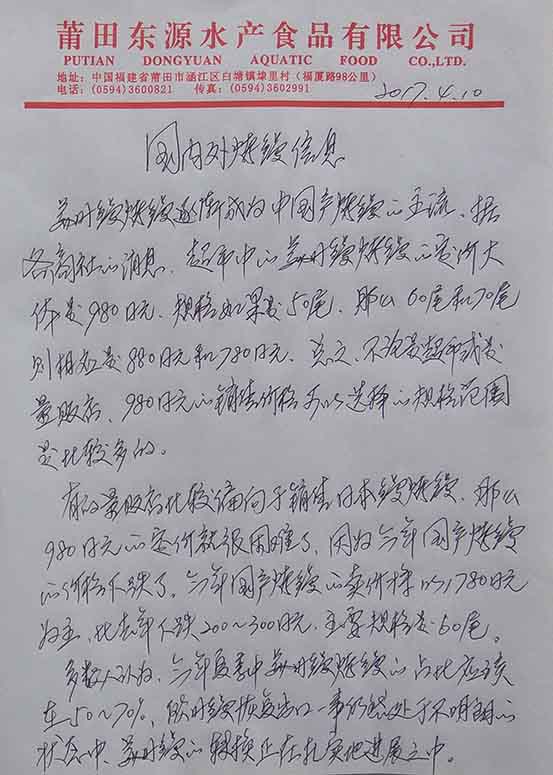 莆田东源水产食品有限公司
PUTIAN DONGYUAN AQUATIC FOOD CO.,LTD.
地址：中国福建省莆田市涵江区白塘镇埭里村（福厦路98公里）
电话：(0594)3600821 传真：(0594)3602991
2017.4.10
国内外烤鳗信息
美州鳗烤鳗逐渐成为中国产烤鳗的主流、据
各商社的消息、超市中的美州鳗烤鳗的卖价大
体是980日元、规格如果是50尾、那么60尾和70尾
则相应是880日元和780日元、总之、不论是超市或是
量販店、980日元的销售价格可以选择的规格范围
是比较多的。
有的量販店比较偏向于销售日本鳗烤鳗、那么
980日元的卖价就很困难了、因为今年国产烤鳗
的价格下跌了。今年国产烤鳗的卖价将以1,780日元
为主、比去年下跌200～300日元、主要规格是60尾。
多数人认为、今年夏季中美州鳗烤鳗的占比应该
在50～70%、欧州鳗恢复出口一事仍然处于不明朗的
状态中、美州鳗的转换正在扎实地进展之中。